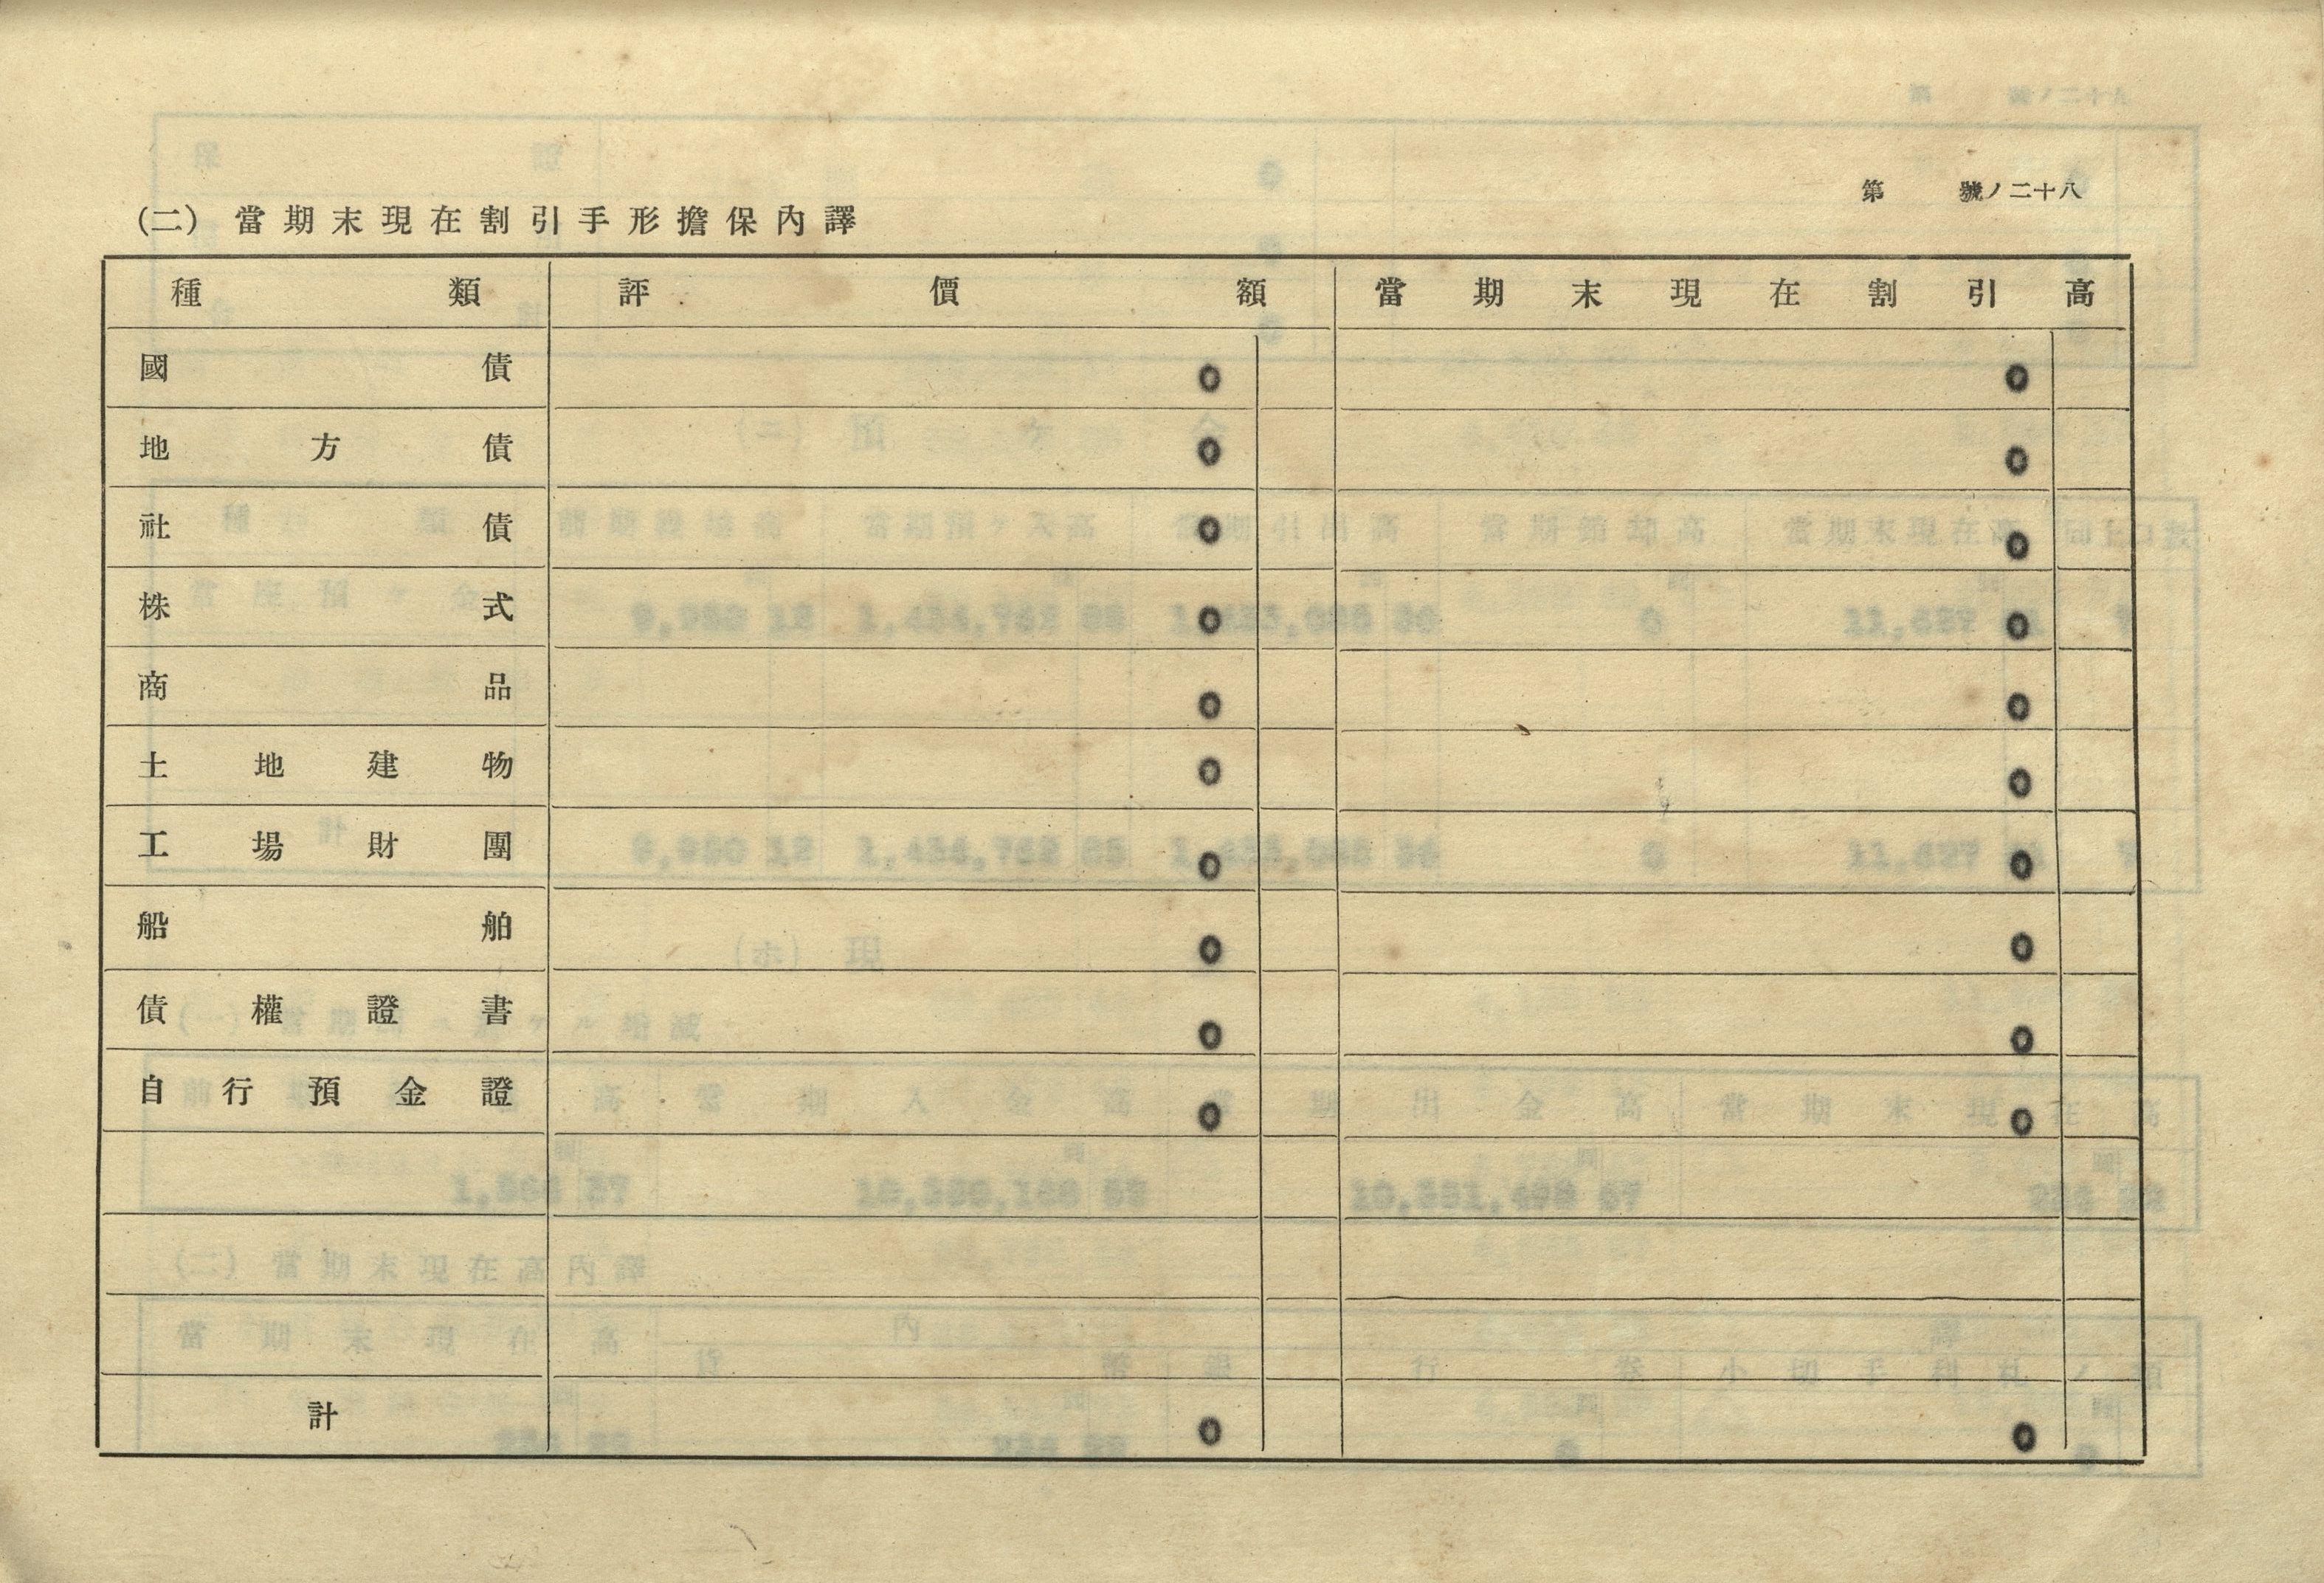 第 號ノ二十八
(二) 當期末現在割引手形擔保內譯
種類 評價額 當期末現在割引高
國債 0 0
地方債 0 0
社債 0 0
株式 0 0
商品 0 0
土地建物 0 0
工場財團 0 0
船舶 0 0
債權證書 0 0
自行預金證 0 0
計 0 0